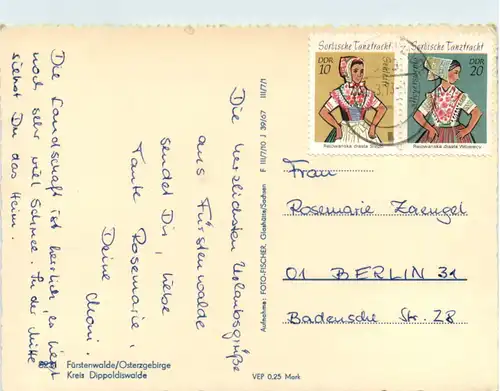 Die Landschaft ist herrlich, es liegt
noch sehr viel Schnee. In der Mitte
siehst Du das Heim.
Die herzlichsten Urlaubsgrüße
aus Fürstenwalde
sendet Dir, liebe
Tante Rosemarie,
Deine
Moni.
Fürstenwalde/Osterzgebirge
Kreis Dippoldiswalde
VEP 0,25 Mark
Aufnahme: FOTO-FISCHER, Glashütte/Sachsen F III/7/10 J 39/67 III/7/1
Sorbische Tanztracht
DDR
10
Sorbische Tanztracht
DDR
20
Frau
Rosemarie Zaengel
01 BERLIN 31
Badensche Str. 28